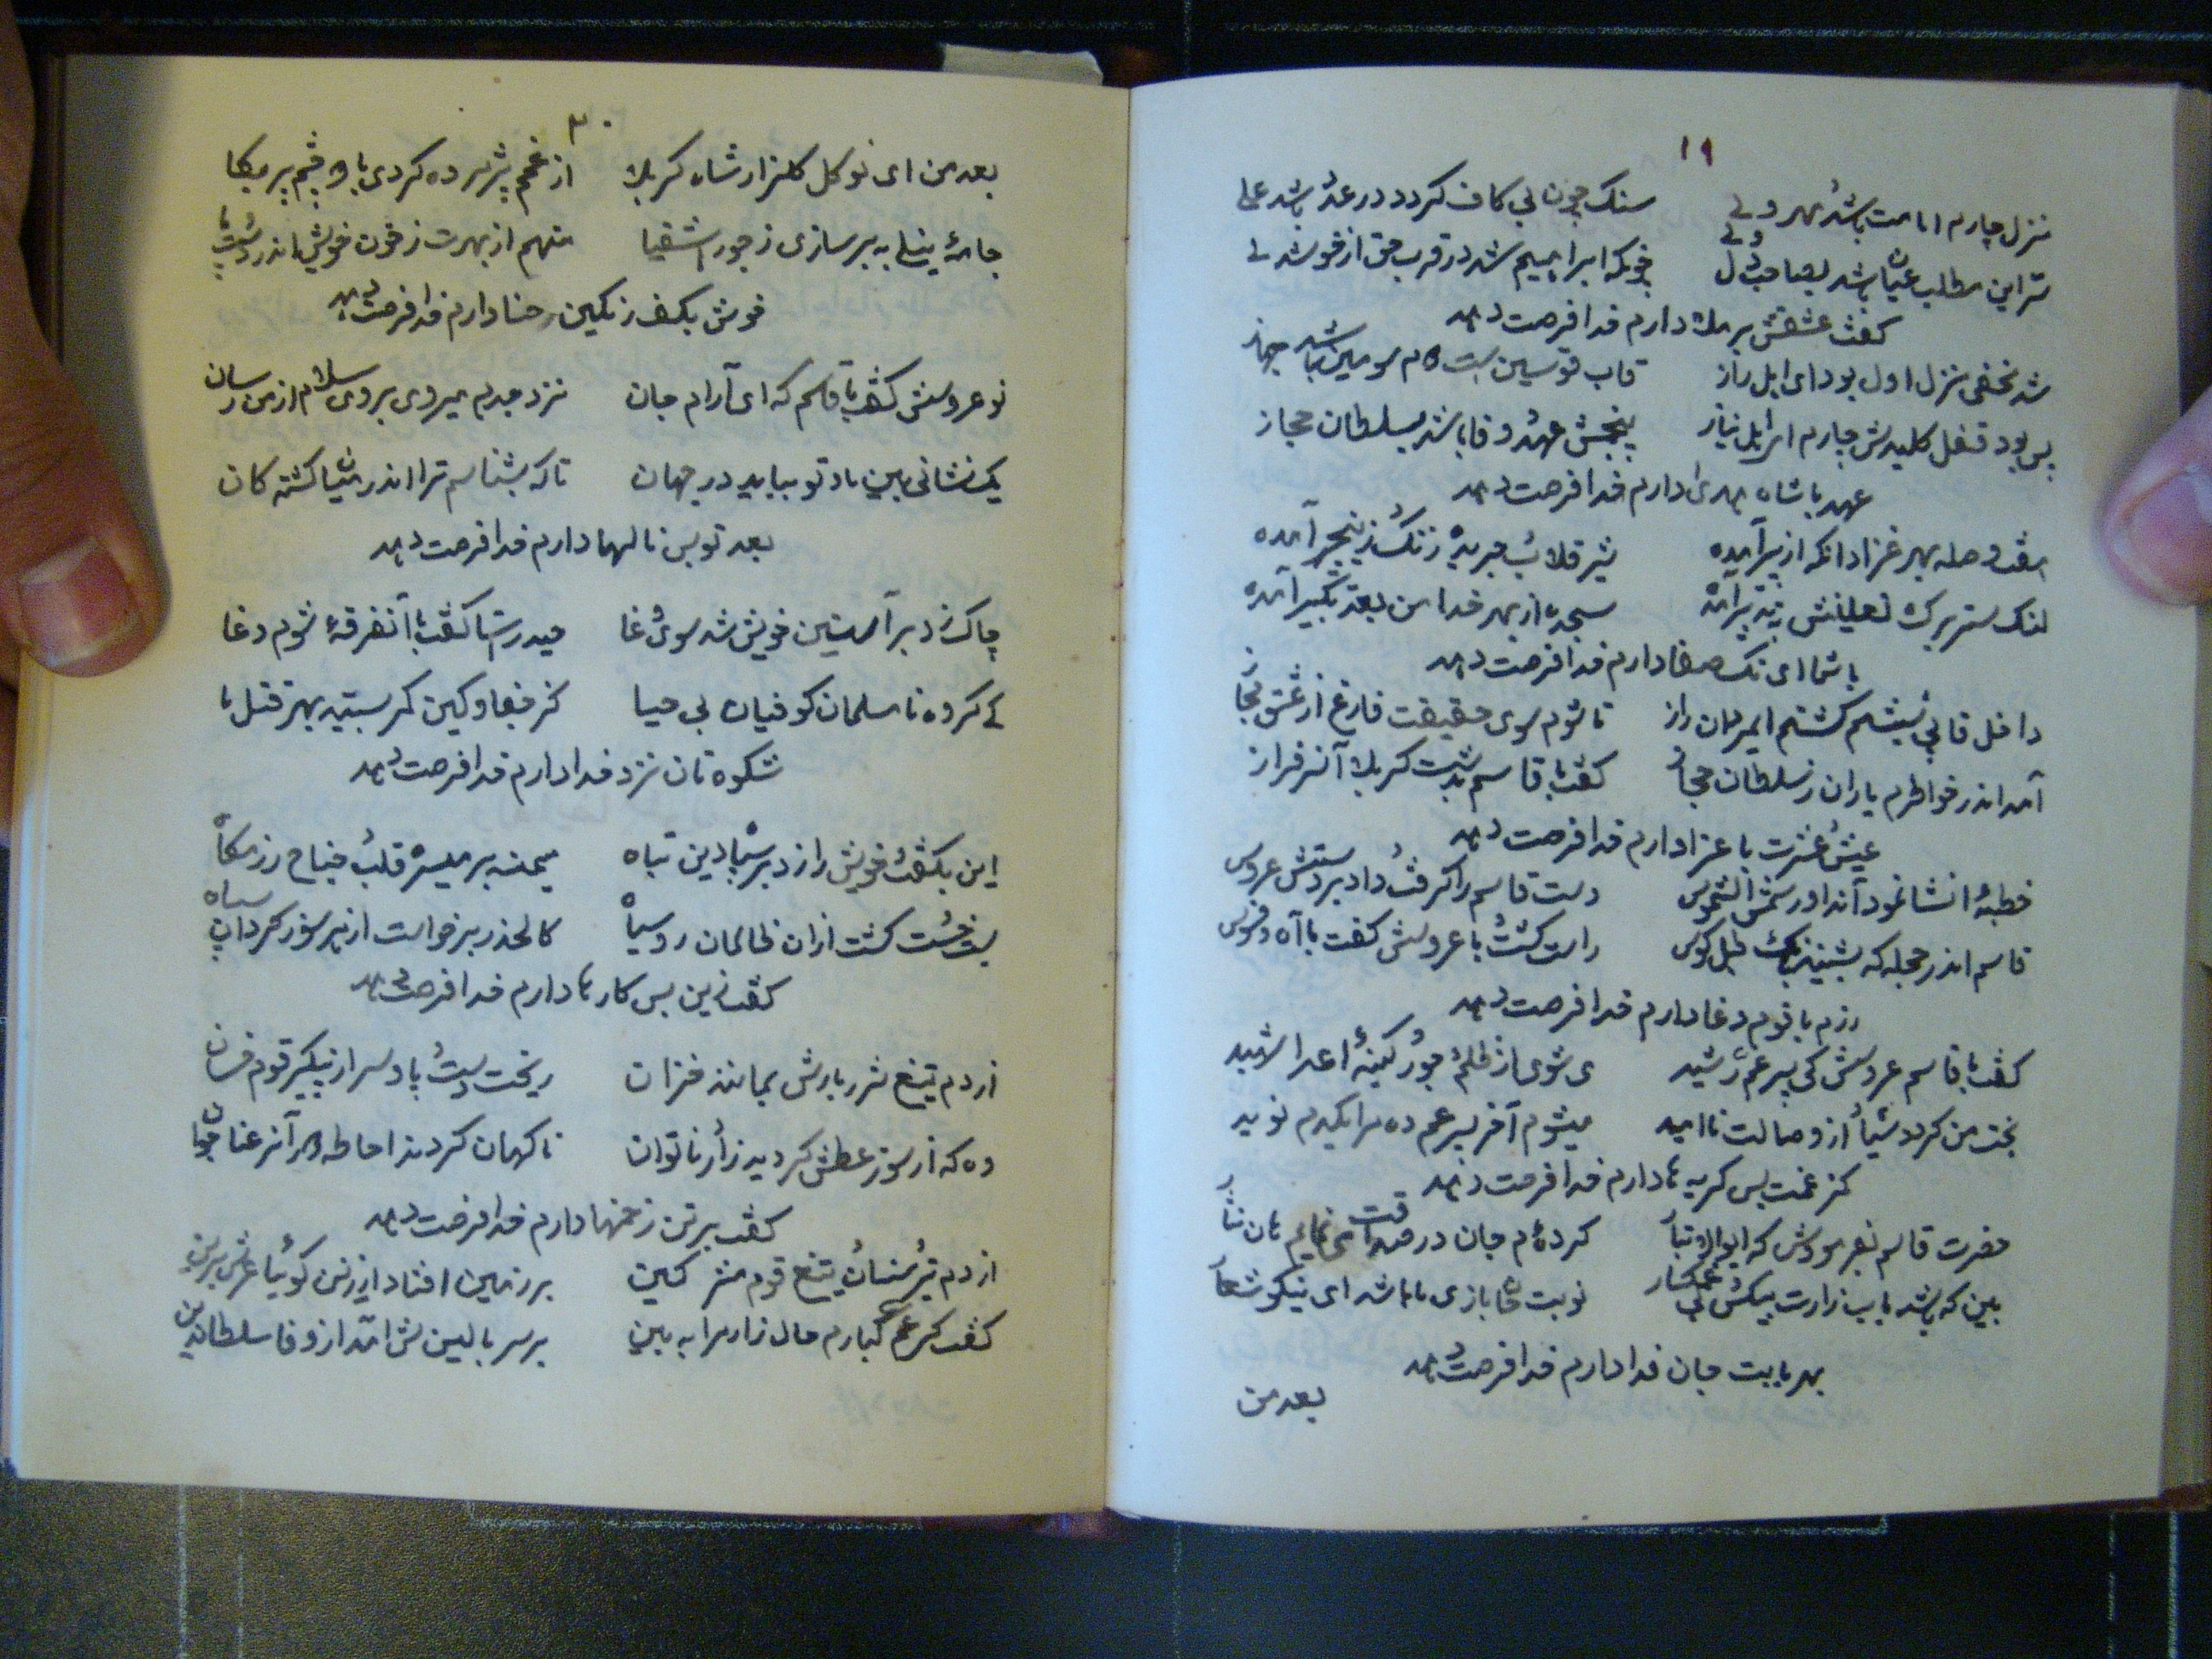 ۱۹
منزل چارم امامت باشد بهر ولی سنک چون بی کاف کردد در عدد باشد علی
سر این مطلب عیان باشد بصاحب دل ولی چونکه ابراهیم شد در قرب حق از خوشدلی
کفت عشقش برملا دارم خدا فرصت دهد
شد نخفی منزل اول بود ای اهل راز قاب قوسین است دوم سومین باشد جهاز
پس بود قفل کلیدش چارم ای اهل نیاز پنجمش عهد و فا باشد بسلطان حجاز
عهد با شاه هدی دارم خدا فرصت دهد
هفت وصله بهر عزا دانکه از پیر آمده قلاب جریده زنک زنجیر آمده
لنک ستر برک نعلینش آمده سجده از بهر خدا من بعد تکبیر آمده
با شما ای نیک صفا دارم خدا فرصت دهد
داخل قاپی ششم کشتم ایمیرمان راز تا شوم سوی حقیقت فارغ از عشق مجاز
آمد اندر خواطرم یاران ز سلطان حجاز کفت با قاسم بدشت کربلا آنسرفراز
عیش عشرت با عزا دارم خدا فرصت دهد
خطبهٔ انشا نمود آنداور شمس الشموس دست قاسم را کرفت داد بر دستش عروس
قاسم اندر حجله که بشنید بانک طبل کوس راست کشت با عروسش کفت با آه و فسوس
رزم با قوم دغا دارم خدا فرصت دهد
کفت با قاسم عروسش کی پسر عم رشید می شوی از ظلم جور کینهٔ اعدا شهید
بخت من کردد سیاه از وصالت ناامید میشوم آخر پسر عم ده مرا یکدم نوید
کز غمت بس کریه ها دارم خدا فرصت دهد
حضرت قاسم بفرمودش که ای والا تبار کرده ام جان در صداقت می نمایم تان نثار
بین که باشد باب زارت بیکس و بی غمکسار نوبت جانبازی ما باشد ای نیکو شعار
بهر بابت جان فدا دارم خدا فرصت دهد
بعد من
۲۰
بعد من ای نوکل کلزار شاه کربلا از غم پژمرده کردی با دو چشم پر بکا
جامهٔ نیلی به بر سازی ز جور اشقیا منهم از بهرت ز خون خویش اندر دست پا
خوش بکف رنکین حنا دارم خدا فرصت دهد
نو عروسش کفت با قاسم که ای آرام جان نزد جدم میروی بر وی سلام از من رسان
یک نشانی بین ما و تو بباید در جهان تا که بشناسم ترا اندر میان کشته کان
بعد تو بس نالها دارم خدا فرصت دهد
چاک زد بر آستین خویش شد سوی غا حیدر آسا کفت با آنفرقهٔ شوم دغا
کی کروه نا مسلمان کوفیان بی حیا کز جفا و کین کمر بسته بهر قتل ما
شکوه تان نزد خدا دارم خدا فرصت دهد
این بکفت خویش را زد بر سپاه دین تباه میمنه بر میسره قلب جناح رزمکاه
بسکه کشت از ان ظالمان رو سیاه کالحذر برخواست از پیر سوز کردان سپاه
کفت زین بس کارها دارم خدا فرصت دهد
از دم تیغ شرر بارش بمانند خزان ریخت دست پا و سر از پیکر قوم خسان
وه که از سوز عطش کردید زار ناتوان ناکهان کردند احاطه دور آنرعنا جوان
کفت بر تن زخمها دارم خدا فرصت دهد
از دم تیر سنان تیغ قوم مشرکین بر زمین افتاد از زین کوئیا عرش برین
کفت کی عم کبارم حال زار مرا به بین بر سر بالین ش آمد از وفا سلطان دین